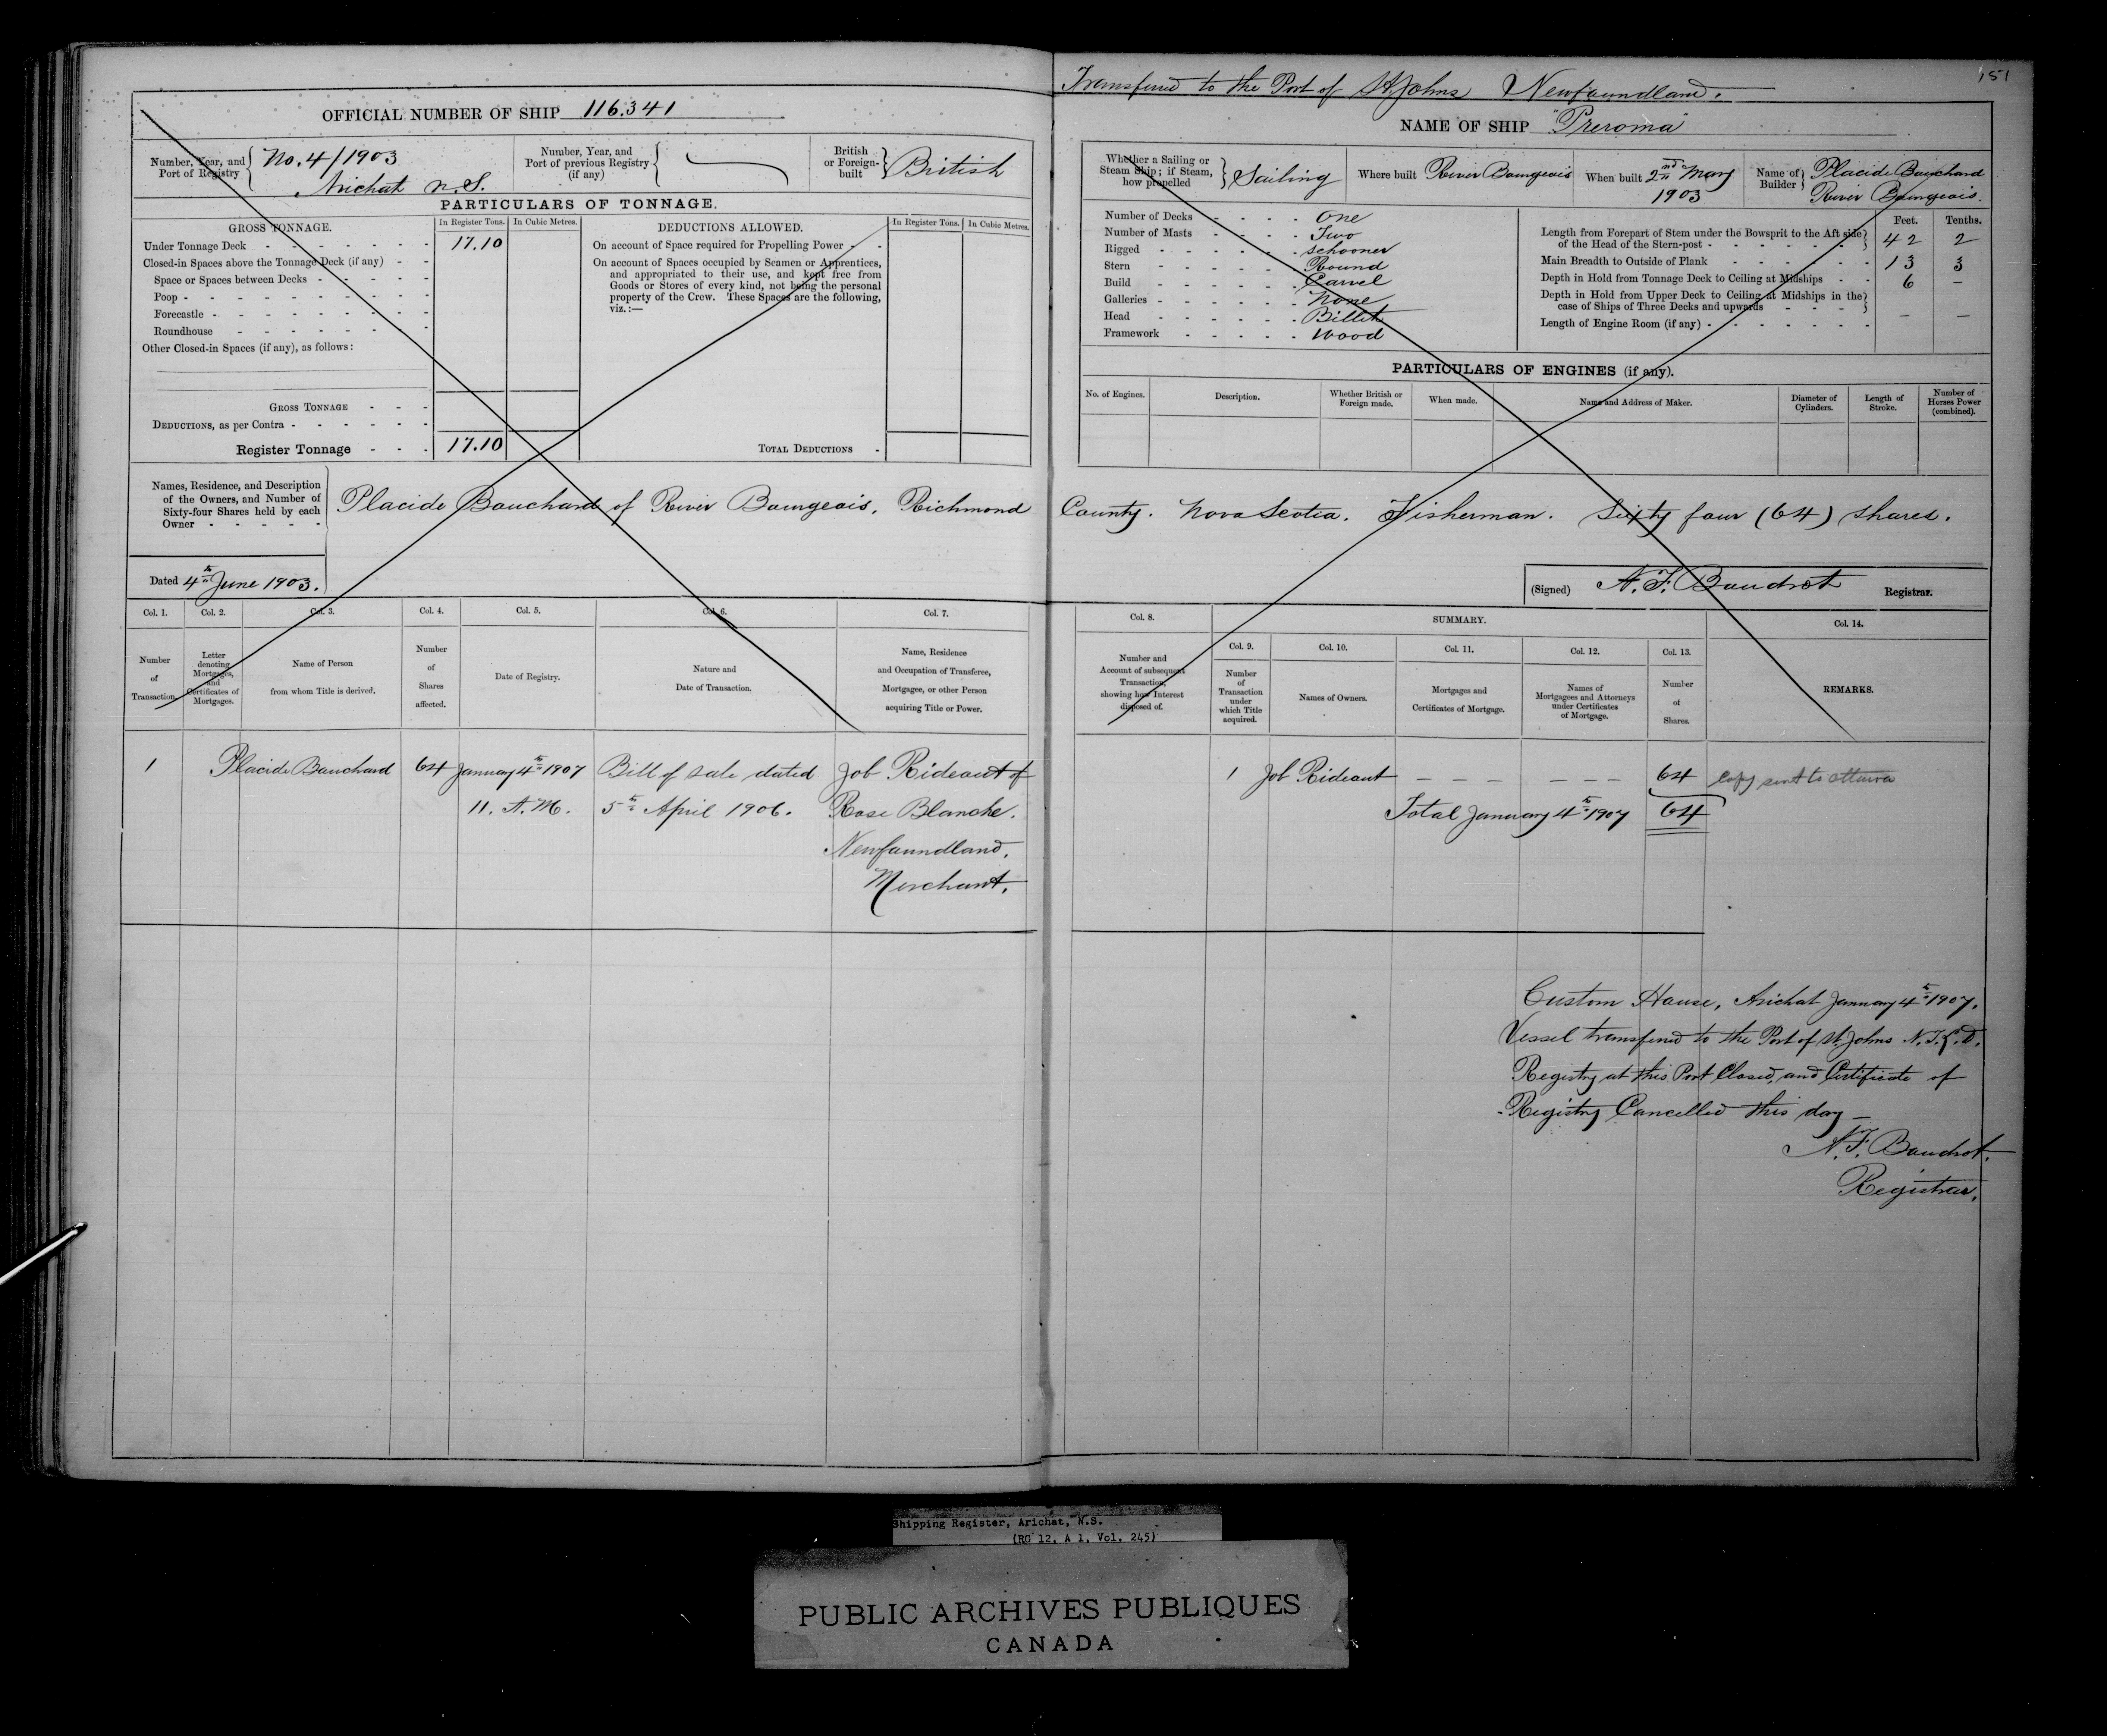 151
Transferred to the Port of St Johns Newfoundland.
OFFICIAL NUMBER OF SHIP 116.341
NAME OF SHIP "Preroma"
Number, Year, and Port of Registry
No. 4/1903
Arichat N.S.
Number, Year, and Port of previous Registry (if any)
British or Foreign-built
British
PARTICULARS OF TONNAGE.
GROSS TONNAGE. In Register Tons. In Cubic Metres.
Under Tonnage Deck - 17.10
Closed-in Spaces above the Tonnage Deck (if any) - -
Space or Spaces between Decks -
Poop -
Forecastle -
Roundhouse -
Other Closed-in Spaces (if any), as follows:
GROSS TONNAGE - - -
DEDUCTIONS, as per Contra -
Register Tonnage - - - 17.10
DEDUCTIONS ALLOWED. In Register Tons. In Cubic Metres.
On account of Space required for Propelling Power -
On account of Spaces occupied by Seamen or Apprentices,
and appropriated to their use, and kept free from
Goods or Stores of every kind, not being the personal
property of the Crew. These Spaces are the following,
viz.:—
TOTAL DEDUCTIONS -
Whether a Sailing or Steam Ship; if Steam, how propelled
Sailing
Where built River Bourgeois
When built 2nd May
1903
Name of Builder
Placide Bouchard
River Bourgeois.
Number of Decks - One
Number of Masts - Two
Rigged - schooner
Stern - Round
Build - Carvel
Galleries - None
Head - Billet
Framework - Wood
Feet. Tenths.
Length from Forepart of Stem under the Bowsprit to the Aft side
of the Head of the Stern-post - 42 2
Main Breadth to Outside of Plank - 13 3
Depth in Hold from Tonnage Deck to Ceiling at Midships - - 6 —
Depth in Hold from Upper Deck to Ceiling at Midships in the
case of Ships of Three Decks and upwards - — —
Length of Engine Room (if any) -
PARTICULARS OF ENGINES (if any).
No. of Engines. Description. Whether British or Foreign made. When made. Name and Address of Maker. Diameter of Cylinders. Length of Stroke. Number of Horses Power (combined).
Names, Residence, and Description
of the Owners, and Number of
Sixty-four Shares held by each
Owner -
Placide Bouchard of River Bourgeois, Richmond County. Nova Scotia. Fisherman. Sixty four (64) shares.
Dated 4th June 1903.
(Signed) N. F. Boudrot Registrar.
Col. 1. Col. 2. Col. 3. Col. 4. Col. 5. Col. 6. Col. 7.
Number of Transaction.
Letter denoting Mortgages, and Certificates of Mortgages.
Name of Person from whom Title is derived.
Number of Shares affected.
Date of Registry.
Nature and Date of Transaction.
Name, Residence and Occupation of Transferee, Mortgagee, or other Person acquiring Title or Power.
1 Placide Bouchard 64 January 4th 1907 Bill of sale dated Job Rideout of
11. A.M. 5th April 1906. Rose Blanche.
Newfoundland,
Merchant.
Col. 8. SUMMARY. Col. 14.
Col. 9. Col. 10. Col. 11. Col. 12. Col. 13.
Number and Account of subsequent Transaction, showing how Interest disposed of.
Number of Transaction under which Title acquired.
Names of Owners.
Mortgages and Certificates of Mortgage.
Names of Mortgagees and Attorneys under Certificates of Mortgage.
Number of Shares.
REMARKS.
1 Job Rideout — — — — — — 64 Copy sent to Ottawa
Total January 4th 1907 64
Custom House, Arichat January 4th 1907.
Vessel transferred to the Port of St. Johns N.F.L.D.
Registry at this Port Closed, and Certificate of
Registry Cancelled this day —
N. F. Boudrot.
Registrar.
Shipping Register, Arichat, N.S.
(RG 12, A 1, Vol. 245)
PUBLIC ARCHIVES PUBLIQUES
CANADA